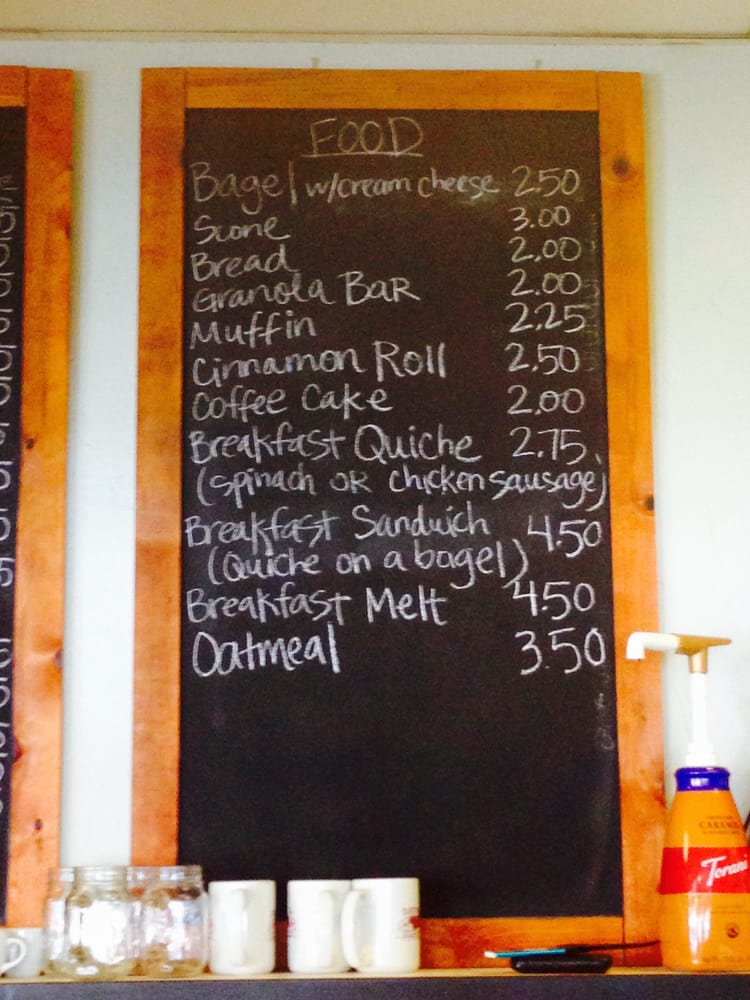 FOOD
Bagel w/cream cheese 2.50
Scone 3.00
Bread 2.00
Granola Bar 2.00
Muffin 2.25
Cinnamon Roll 2.50
Coffee Cake 2.00
Breakfast Quiche 2.75
(spinach or chicken sausage)
Breakfast Sandwich 4.50
(Quiche on a bagel)
Breakfast Melt 4.50
Oatmeal 3.50
CARAMEL
Torani